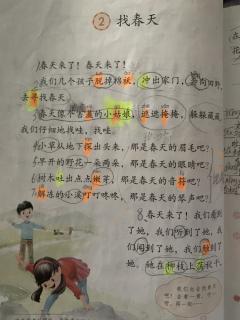 2 找春天
1春天来了！春天来了！
2我们几个孩子脱掉棉袄，冲出家门，奔向田野，
去寻找春天。
3春天像个害羞的小姑娘，遮遮掩掩，躲躲藏藏。
我们仔细地找哇，找哇。
4小草从地下探出头来，那是春天的眉毛吧？
5早开的野花一朵两朵，那是春天的眼睛吧？
6树木吐出点点嫩芽，那是春天的音符吧？
7解冻的小溪叮叮咚咚，那是春天的琴声吧？
8春天来了！我们看到
了她，我们听到了她，我
们闻到了她，我们触到了
她。她在柳枝上荡秋千，